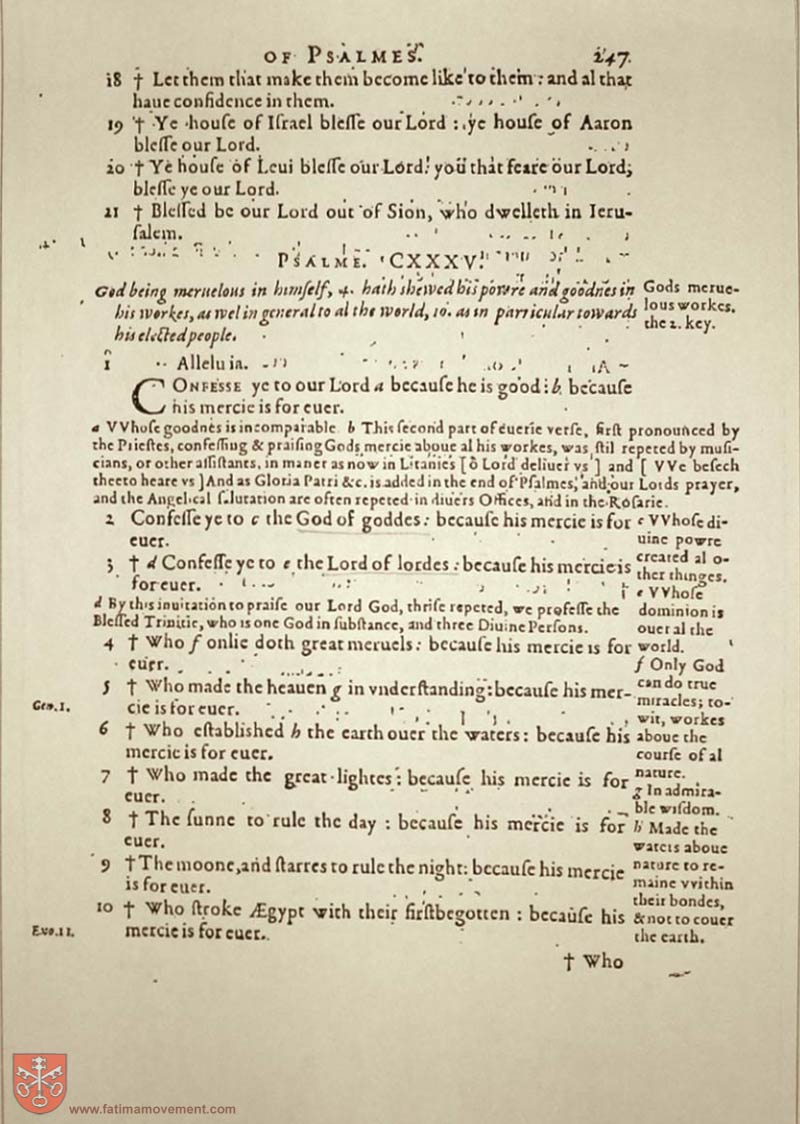 OF PSALMES. 247.
18 † Let them that make them become like to them: and al that
haue confidence in them.
19 † Ye house of Israel blesse our Lord: ye house of Aaron
blesse our Lord.
20 † Ye house of Leui blesse our Lord: you that feare our Lord,
blesse ye our Lord.
21 † Blessed be our Lord out of Sion, who dwelleth in Ieru-
salem.
PSALME. CXXXV.
God being meruelous in himself, 4. hath shewed his powre and goodnes in
his workes, as wel in general to al the world, 10. as in particular towards
his elected people.
Gods merue-
lous workes.
the 2. key.
1 Alleluia.
CONFESSE ye to our Lord a because he is good: b because
his mercie is for euer.
a VVhose goodnes is incomparable. b This second part of euerie verse, first pronounced by
the Priestes, confessing & praising Gods mercie aboue al his workes, was stil repeted by musi-
cians, or other assistants, in maner as now in Litanies [ô Lord deliuer vs] and [VVe besech
thee to heare vs] And as Gloria Patri &c. is added in the end of Psalmes, and our Lords prayer,
and the Angelical salutation are often repeted in diuers Offices, and in the Rosarie.
2 Confesse ye to c the God of goddes: because his mercie is for
euer.
3 † d Confesse ye to e the Lord of lordes: because his mercie is
for euer.
d By this inuitation to praise our Lord God, thrise repeted, we professe the
Blessed Trinitie, who is one God in substance, and three Diuine Persons.
4 † Who f onlie doth great meruels: because his mercie is for
euer.
5 † Who made the heauen g in vnderstanding: because his mer-
cie is for euer.
Gen. 1.
6 † Who established h the earth ouer the waters: because his
mercie is for euer.
7 † Who made the great lightes: because his mercie is for
euer.
8 † The sunne to rule the day: because his mercie is for
euer.
9 † The moone, and starres to rule the night: because his mercie
is for euer.
10 † Who stroke Ægypt with their firstbegotten: because his
mercie is for euer.
Exo. 11.
c VVhose di-
uine powre
created al o-
ther thinges.
e VVhose
dominion is
ouer al the
world.
f Only God
can do true
miracles; to-
wit, workes
aboue the
course of al
nature.
g In admira-
ble wisdom.
h Made the
waters aboue
nature to re-
maine vvithin
their bondes,
& not to couer
the earth.
† Who
www.fatimamovement.com